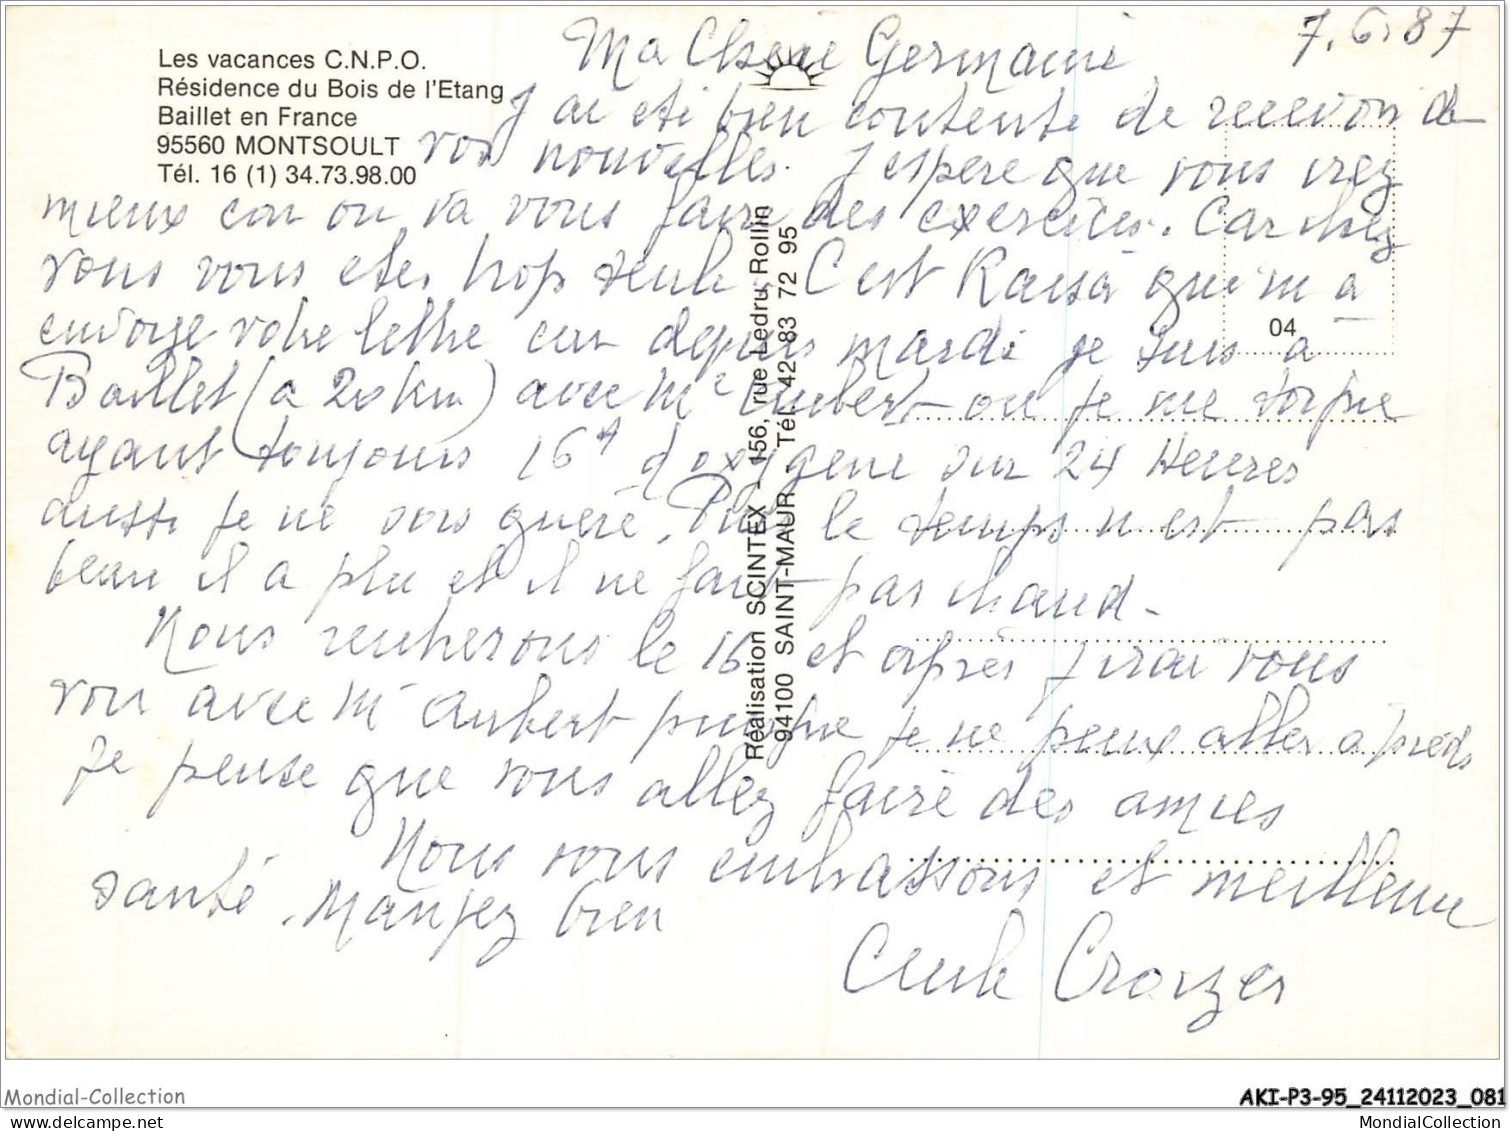 Les vacances C.N.P.O.
Résidence du Bois de l'Etang
Baillet en France
95560 MONTSOULT
Tél. 16 (1) 34.73.98.00
7.6.87
Ma Chere Germaine
J ai eté bien contente de recevoir de
vos nouvelles. J espere que vous irez
mieux car on va vous faire des exercices. Car chez
vous vous etes trop seule. C est Raisa qui m a
envoyé votre lettre car depuis mardi je suis a
Baillet (a 20 km) avec Me Aubert ou je me soigne
ayant toujours 16 H d oxygene sur 24 Heures
aussi je ne sors guere. Puis le temps n est pas
beau il a plu et il ne fait pas chaud -
Nous rentrerons le 16 et apres j irai vous
voir avec Me Aubert puisque je ne peux aller a pieds
Je pense que vous allez faire des amies
Nous vous embrassons et meilleure
santé. Mangez bien
Cecile Croizer
Réalisation SCINTEX - 156, rue Ledru Rollin
94100 SAINT-MAUR Tél. 42 83 72 95
04
Mondial-Collection
AKI-P3-95_24112023_081
www.mondial-collection.delcampe.net
MondialCollection